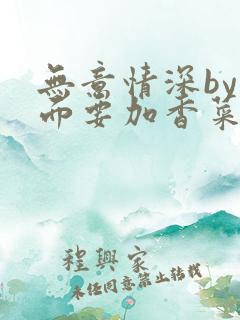 無意情深by
而要加香菜
程興家
未任同意禁止转载